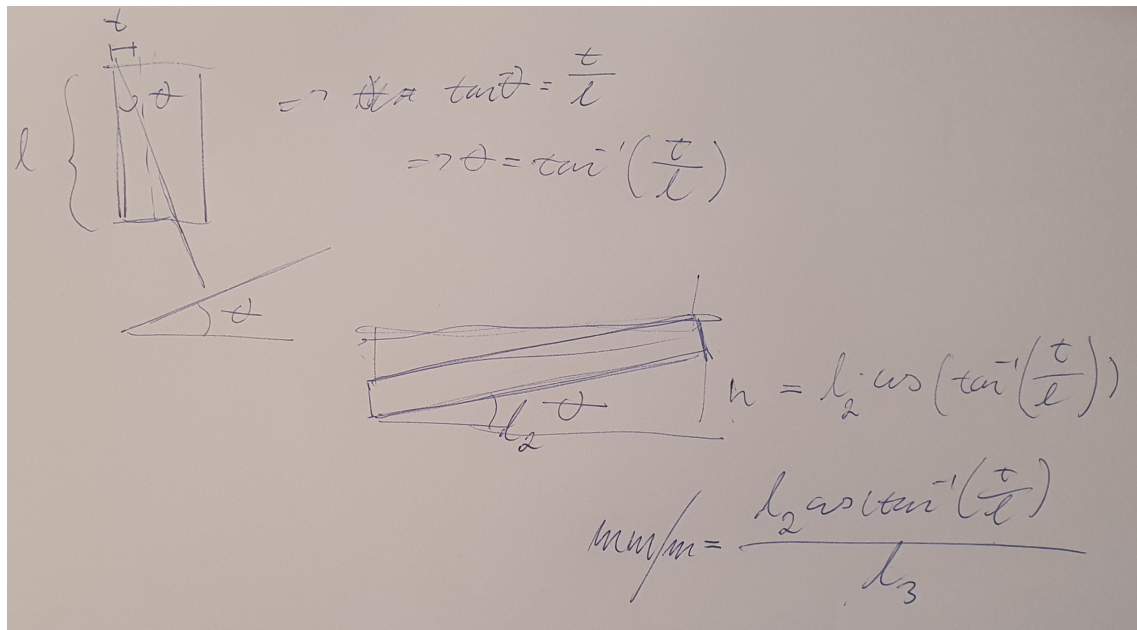 t
θ
l
=> tanθ = t/l
=> θ = tan⁻¹(t/l)
θ
θ
l₂
h = l₂ cos(tan⁻¹(t/l))
mm/m = l₂ cos(tan⁻¹(t/l) / l₃